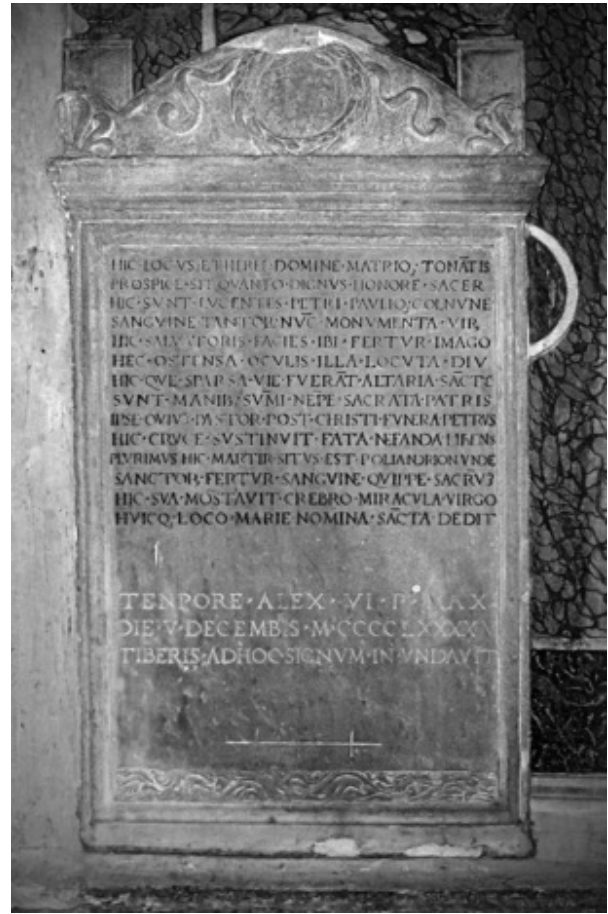 HIC·LOCVS·ETHEREE·DOMINE·MATRIQ;·TONĀTIS
PROSPICE·SIT·QVANTO·DIGNVS·HONORE·SACER
HIC·SVNT·LVCENTES·PETRI·PAVLIQ;·COLVNE
SANGVINE·TANTOR·NVC̄·MONVMENTA·VIR
HIC·SALVATORIS·FACIES·IBI·FERTVR·IMAGO
HEC·OSTENSA·OCVLIS·ILLA·LOCVTA·DIV
HIC·QVE·SPARSA·VIE·FVERĀT·ALTARIA·SĀCTE
SVNT·MANIB;·SVMI·NEPE·SACRATA·PATRIS
IPSE·OVIV3·PASTOR·POST·CHRISTI·FVNERA·PETRVS
HIC·CRVCE·SVSTINVIT·FATA·NEFANDA·LIBENS
PLVRIMVS·HIC·MARTIR·SITVS·EST·POLIANDRION·VNDE
SANCTOR·FERTVR·SANGVINE·QVIPPE·SACRV3
HIC·SVA·MOSTAVIT·CREBRO·MIRACVLA·VIRGO
HVICQ;·LOCO·MARIE·NOMINA·SĀCTA·DEDIT
TENPORE·ALEX·VI·P·MAX·
DIE·V·DECEMBIS·M·CCCCLXXXXV
TIBERIS·ADHOC·SIGNVM·INVNDAVIT